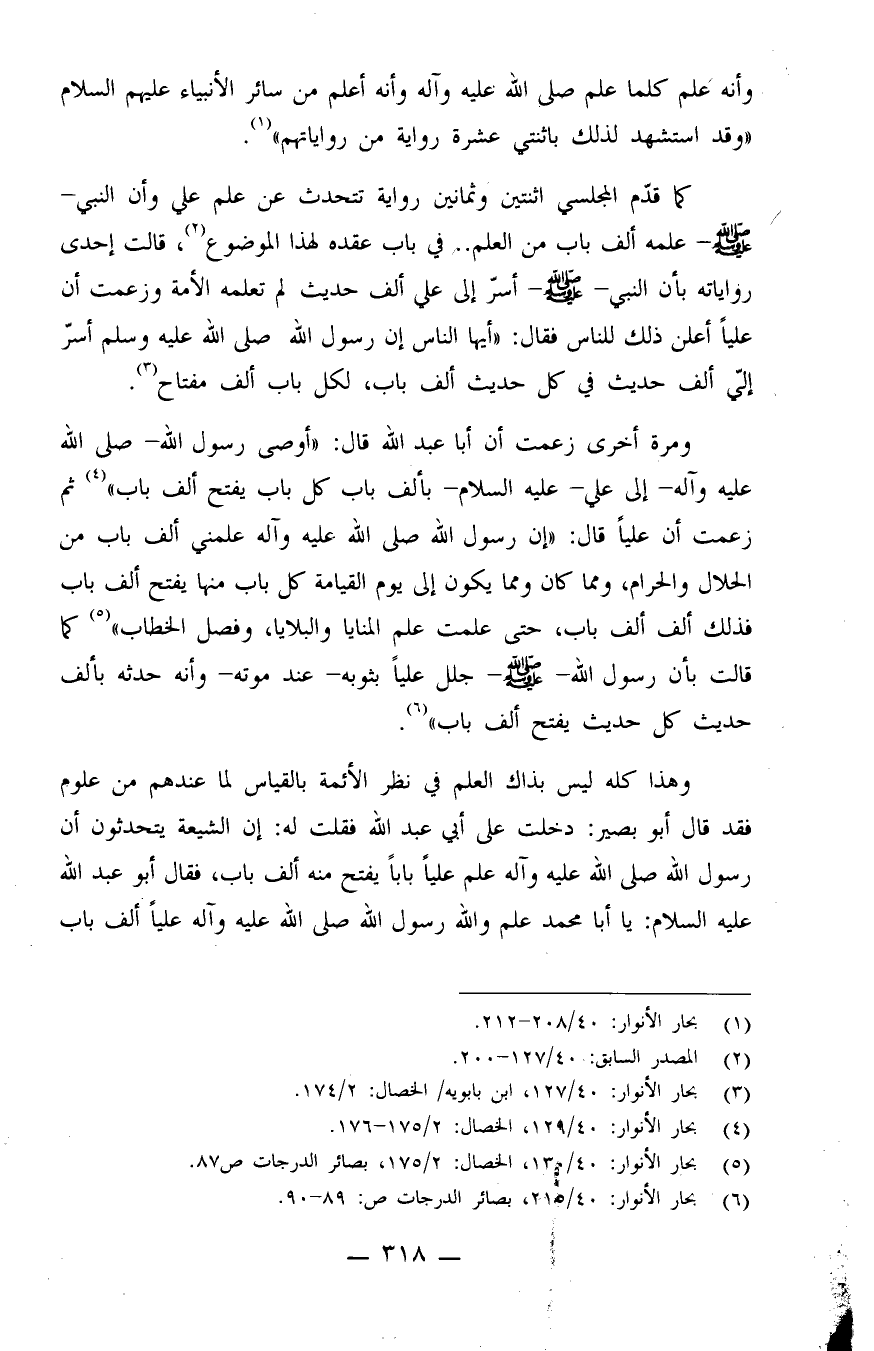 وأنه علم كلما علم صلى الله عليه وآله وأنه أعلم من سائر الأنبياء عليهم السلام
«وقد استشهد لذلك باثنتي عشرة رواية من رواياتهم»(١).
كما قدّم المجلسي اثنتين وثمانين رواية تتحدث عن علم علي وأن النبي–
ﷺ– علمه ألف باب من العلم.. في باب عقده لهذا الموضوع(٢)، قالت إحدى
رواياته بأن النبي– ﷺ– أسرّ إلى علي ألف حديث لم تعلمه الأمة وزعمت أن
علياً أعلن ذلك للناس فقال: «أيها الناس إن رسول الله صلى الله عليه وسلم أسرّ
إليّ ألف حديث في كل حديث ألف باب، لكل باب ألف مفتاح(٣).
ومرة أخرى زعمت أن أبا عبد الله قال: «أوصى رسول الله– صلى الله
عليه وآله– إلى علي– عليه السلام– بألف باب كل باب يفتح ألف باب»(٤) ثم
زعمت أن علياً قال: «إن رسول الله صلى الله عليه وآله علمني ألف باب من
الحلال والحرام، ومما كان ومما يكون إلى يوم القيامة كل باب منها يفتح ألف باب
فذلك ألف ألف باب، حتى علمت علم المنايا والبلايا، وفصل الخطاب»(٥) كما
قالت بأن رسول الله– ﷺ– جلل علياً بثوبه– عند موته– وأنه حدثه بألف
حديث كل حديث يفتح ألف باب»(٦).
وهذا كله ليس بذاك العلم في نظر الأئمة بالقياس لما عندهم من علوم
فقد قال أبو بصير: دخلت على أبي عبد الله فقلت له: إن الشيعة يتحدثون أن
رسول الله صلى الله عليه وآله علم علياً باباً يفتح منه ألف باب، فقال أبو عبد الله
عليه السلام: يا أبا محمد علم والله رسول الله صلى الله عليه وآله علياً ألف باب
(١) بحار الأنوار: ٢٠٨/٤٠–٢١٢.
(٢) المصدر السابق: ١٢٧/٤٠–٢٠٠.
(٣) بحار الأنوار: ١٢٧/٤٠، ابن بابويه/ الخصال: ١٧٤/٢.
(٤) بحار الأنوار: ١٢٩/٤٠، الخصال: ١٧٥/٢–١٧٦.
(٥) بحار الأنوار: ١٣٠/٤٠، الخصال: ١٧٥/٢، بصائر الدرجات ص٨٧.
(٦) بحار الأنوار: ٢١٥/٤٠، بصائر الدرجات ص: ٨٩–٩٠.
— ٣١٨ —